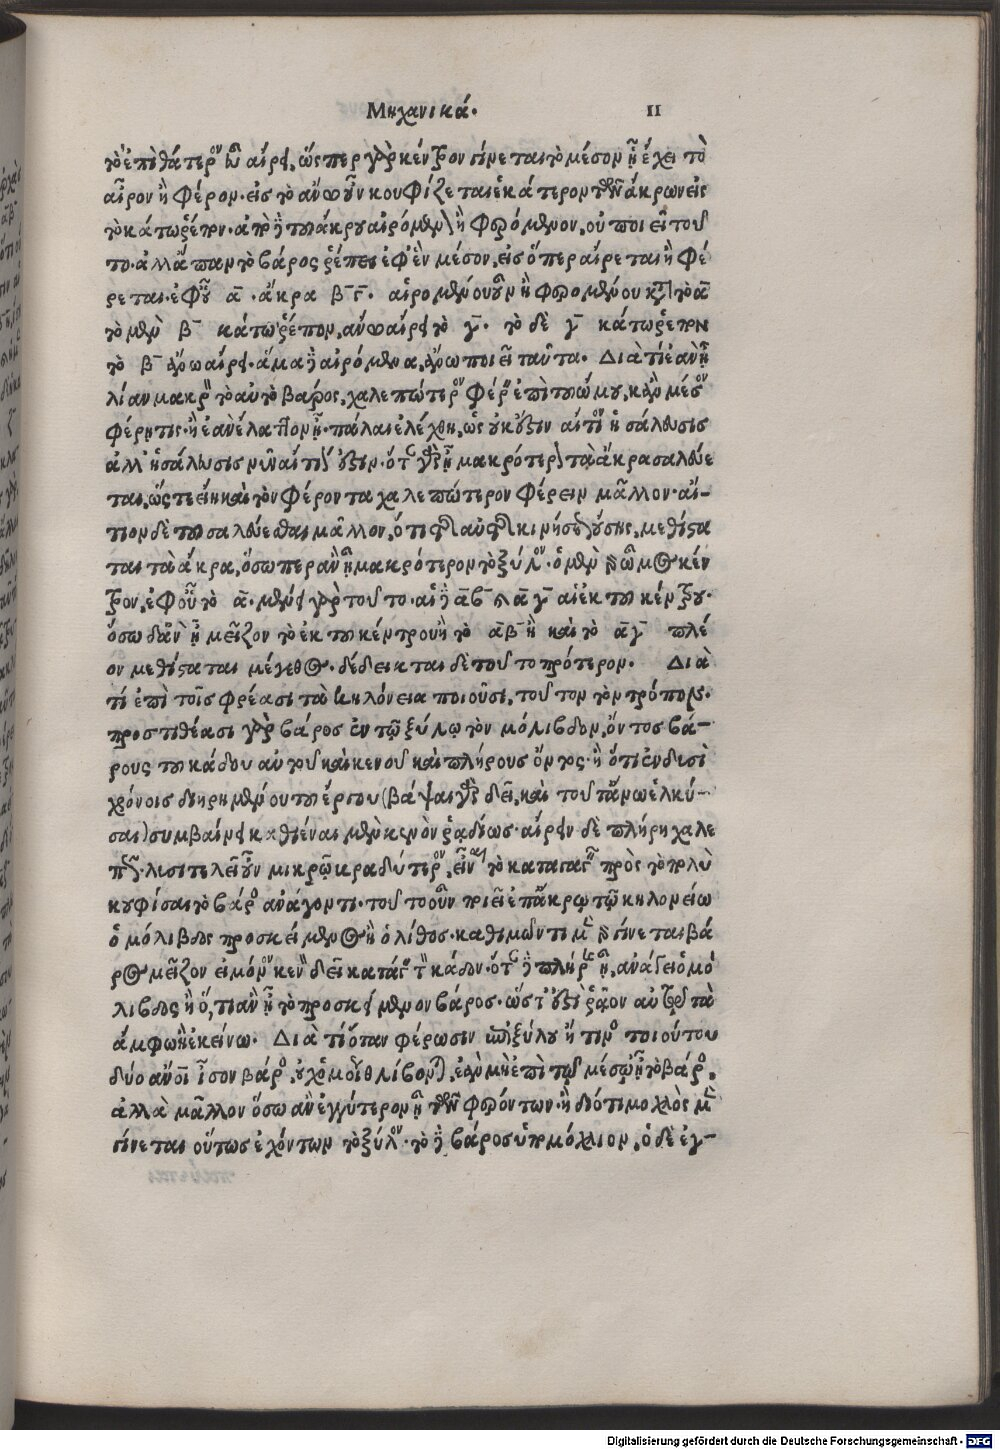 Μηχανικά. 11
τὸ ἐπὶ θάτερον αἴρει, ὥσπερ γὰρ κέντρον γίνεται τὸ μέσον ᾗ ἔχει τὸ
αἶρον ἢ φέρον. εἰς τὸ ἄνω οὖν κουφίζεται ἑκάτερον τῶν ἄκρων εἰς
τὸ κάτω ῥέπον. ἀπὸ δὲ τοῦ ἄκρου αἰρόμενον ἢ φερόμενον, οὐ ποιεῖ τοῦ
το. ἀλλ᾽ ἅπαν τὸ βάρος ῥέπει ἐφ᾽ ἓν μέσον, εἰς ὅπερ αἴρεται ἢ φέ
ρεται. ἐφ᾽ οὗ α. ἄκρα β γ. αἰρομένου οὖν ἢ φερομένου κατὰ τὸ α
τὸ μὲν β κάτω ῥέπον, ἄνω αἴρει τὸ γ. τὸ δὲ γ κάτω ῥέπον
τὸ β ἄνω αἴρει. ἅμα δὲ αἰρόμενα, ἄνω ποιεῖ ταῦτα. Διὰ τί ἐὰν ᾖ
λίαν μακρὸν τὸ αὐτὸ βάρος, χαλεπώτερον φέρειν ἐπὶ τοῦ ὤμου, κἂν μέσον
φέρῃ τις. ἢ ἐὰν ἔλαττον ᾖ. πάλαι ἐλέχθη, ὡς οὐκ ἔστιν αἴτιον ἡ σάλευσις
ἀλλ᾽ ἡ σάλευσις νῦν αἴτιόν ἐστιν. ὅταν γὰρ ᾖ μακρότερον τὰ ἄκρα σαλεύε
ται, ὥστε εἴη καὶ τὸν φέροντα χαλεπώτερον φέρειν μᾶλλον. αἴ-
τιον δὲ τοῦ σαλεύεσθαι μᾶλλον, ὅτι τῆς αὐτῆς κινήσεως οὔσης, μεθίστα
ται τὰ ἄκρα, ὅσῳ περ ἂν ᾖ μακρότερον τὸ ξύλον. ὁ μὲν ὦμος κέν
τρον, ἐφ᾽ οὗ τὸ α. μένει γὰρ τοῦτο. αἱ δὲ αβ καὶ αγ αἱ ἐκ τοῦ κέντρου.
ὅσῳ δ᾽ ἂν ᾖ μεῖζον τὸ ἐκ τοῦ κέντρου ἢ τὸ αβ ἢ καὶ τὸ αγ πλέ
ον μεθίσταται μέγεθος. δέδεικται δὲ τοῦτο πρότερον. Διὰ
τί ἐπὶ τοῖς φρέασι τὰ κηλόνεια ποιοῦσι, τοῦτον τὸν τρόπον.
προστιθέασι γὰρ βάρος ἐν τῷ ξύλῳ τὸν μόλιβδον, ὄντος βά-
ρους τοῦ κάδου αὐτοῦ καὶ κενοῦ καὶ πλήρους ὄντος. ἢ ὅτι ἐν δυσὶ
χρόνοις διῃρημένου τοῦ ἔργου (βάψαι γὰρ δεῖ, καὶ τοῦτ᾽ ἄνω ἑλκύ-
σαι) συμβαίνει καθιέναι μὲν κενὸν ῥᾳδίως. αἴρειν δὲ πλήρη χαλε
πῶς. λυσιτελεῖ οὖν μικρῷ βραδύτερον εἶναι τὸ καταγαγεῖν πρὸς τὸ πολὺ
κουφίσαι τὸ βάρος ἀνάγοντι. τοῦτο οὖν ποιεῖ ἐπ᾽ ἄκρῳ τῷ κηλονείῳ
ὁ μόλιβδος προσκείμενος ἢ ὁ λίθος. καθιμῶντι μὲν γὰρ γίνεται βά
ρος μεῖζον εἰ μόνον κενὸν δεῖ κατάγειν τὸν κάδον. ὅταν δὲ πλήρης ᾖ, ἀνάγει ὁ μό
λιβδος ἢ ὅ,τι ἂν ᾖ τὸ προσκείμενον βάρος. ὥστ᾽ ἐστὶ ῥᾷον αὐτῷ τὰ
ἄμφω ἢ ἐκείνῳ. Διὰ τί ὅταν φέρωσιν ἐπὶ ξύλου ἤ τινος τοιούτου
δύο ἄνθρωποι ἴσον βάρος, οὐχ ὁμοίως θλίβονται, ἐὰν μὴ ἐπὶ τῷ μέσῳ ᾖ τὸ βάρος,
ἀλλὰ μᾶλλον ὅσῳ ἂν ἐγγύτερον ᾖ τῶν φερόντων. ἢ διότι μοχλὸς μὲν
γίνεται οὕτως ἐχόντων τὸ ξύλον. τὸ δὲ βάρος ὑπομόχλιον, ὁ δὲ ἐγ-